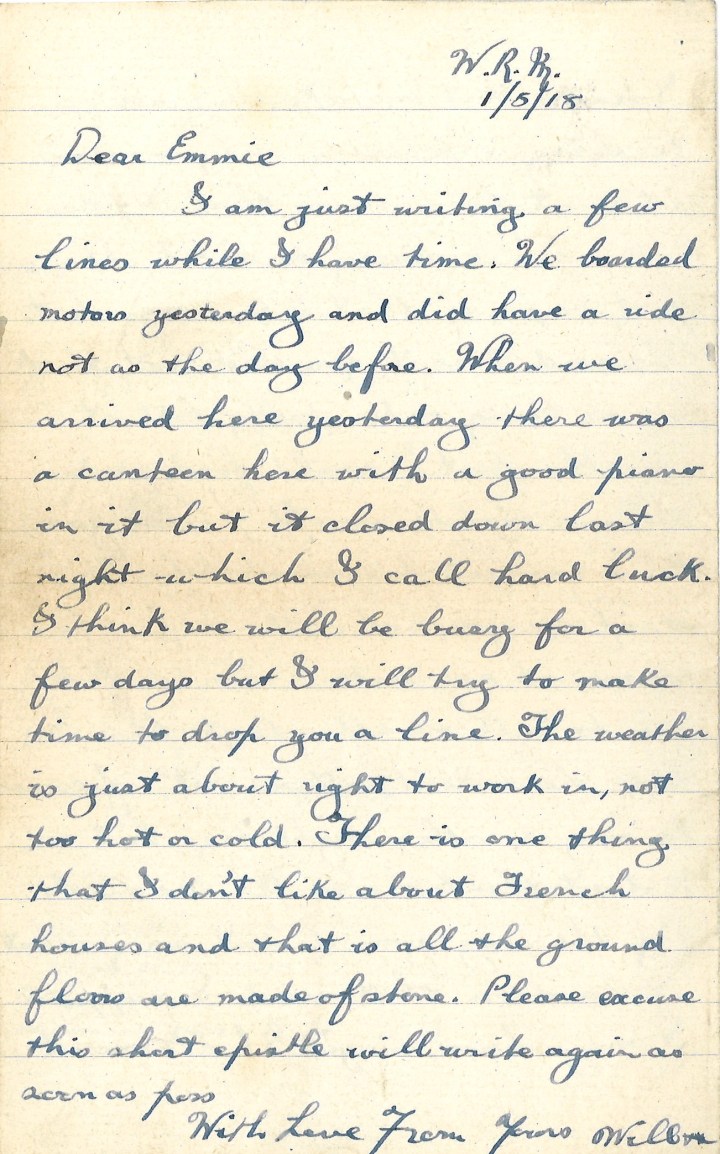 W. R. W.
1/5/18
Dear Emmie
I am just writing a few
lines while I have time. We boarded
motors yesterday and did have a ride
not as the day before. When we
arrived here yesterday there was
a canteen here with a good piano
in it but it closed down last
night which I call hard luck.
I think we will be busy for a
few days but I will try to make
time to drop you a line. The weather
is just about right to work in, not
too hot or cold. There is one thing
that I don't like about French
houses and that is all the ground
floors are made of stone. Please excuse
this short epistle will write again as
soon as poss
With Love From Yours